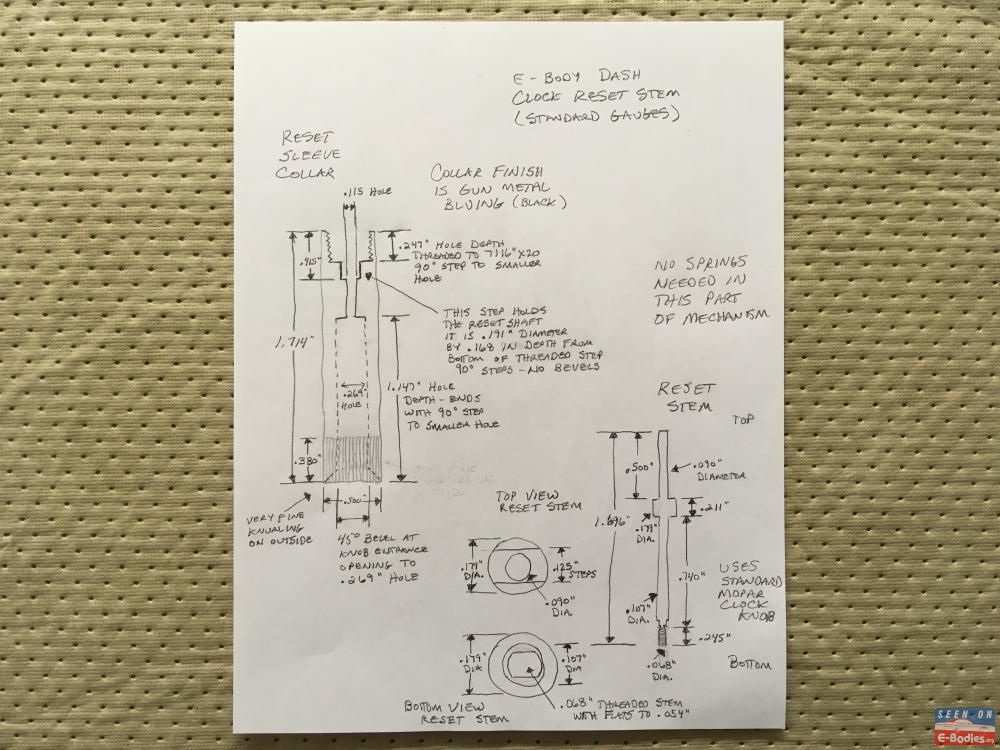 E-BODY DASH
CLOCK RESET STEM
(STANDARD GAUGES)
RESET
SLEEVE
COLLAR
COLLAR FINISH
IS GUN METAL
BLUING (BLACK)
.115 HOLE
.247" HOLE DEPTH
THREADED TO 7116"X20
90° STEP TO SMALLER
HOLE
.415"
NO SPRINGS
NEEDED IN
THIS PART
OF MECHANISM
THIS STEP HOLDS
THE RESET SHAFT
IT IS .191" DIAMETER
BY .168 IN DEPTH FROM
BOTTOM OF THREADED STEP
90° STEPS - NO BEVELS
1.714"
.269"
HOLE
1.147" HOLE
DEPTH - ENDS
WITH 90° STEP
TO SMALLER HOLE
.380"
.500"
VERY FINE
KNURLING
ON OUTSIDE
45° BEVEL AT
KNOB ENTRANCE
OPENING TO
.269" HOLE
RESET
STEM
TOP
.500"
.090"
DIAMETER
.211"
1.696"
.179"
DIA.
.740"
USES
STANDARD
MOPAR
CLOCK
KNOB
.107"
DIA.
.245"
.068"
DIA.
BOTTOM
TOP VIEW
RESET STEM
.179"
DIA.
.125"
STEPS
.090"
DIA.
.179"
DIA
.107"
DIA
.068" THREADED STEM
WITH FLATS TO .054"
BOTTOM VIEW
RESET STEM
SEEN ON
E-Bodies.org